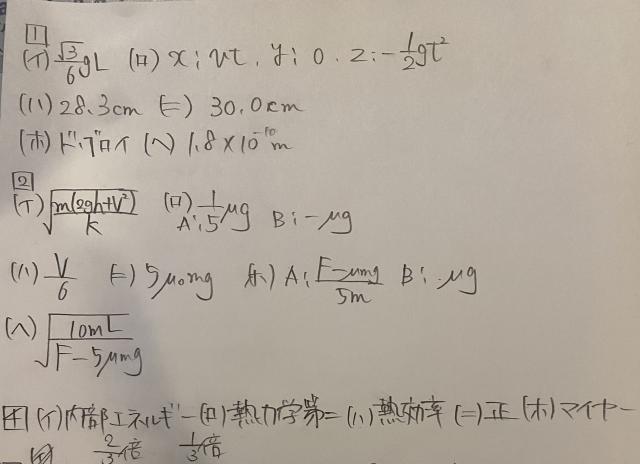 1
(イ) √3/6 gL (ロ) x: vt, y: 0, z: -1/2 gt²
(ハ) 28.3cm (ニ) 30.0cm
(ホ) ド・ブロイ (ヘ) 1.8×10⁻¹⁰m
2
(イ) √(m(2gh+V²)/k) (ロ) A: 1/5 μg B: -μg
(ハ) V/6 (ニ) 5μ₀mg (ホ) A: (F-μmg)/5m B: μg
(ヘ) √(10mL/(F-5μmg))
(イ) 内部エネルギー (ロ) 熱力学第二 (ハ) 熱効率 (ニ) 正 (ホ) マイヤー
2/3倍 1/3倍